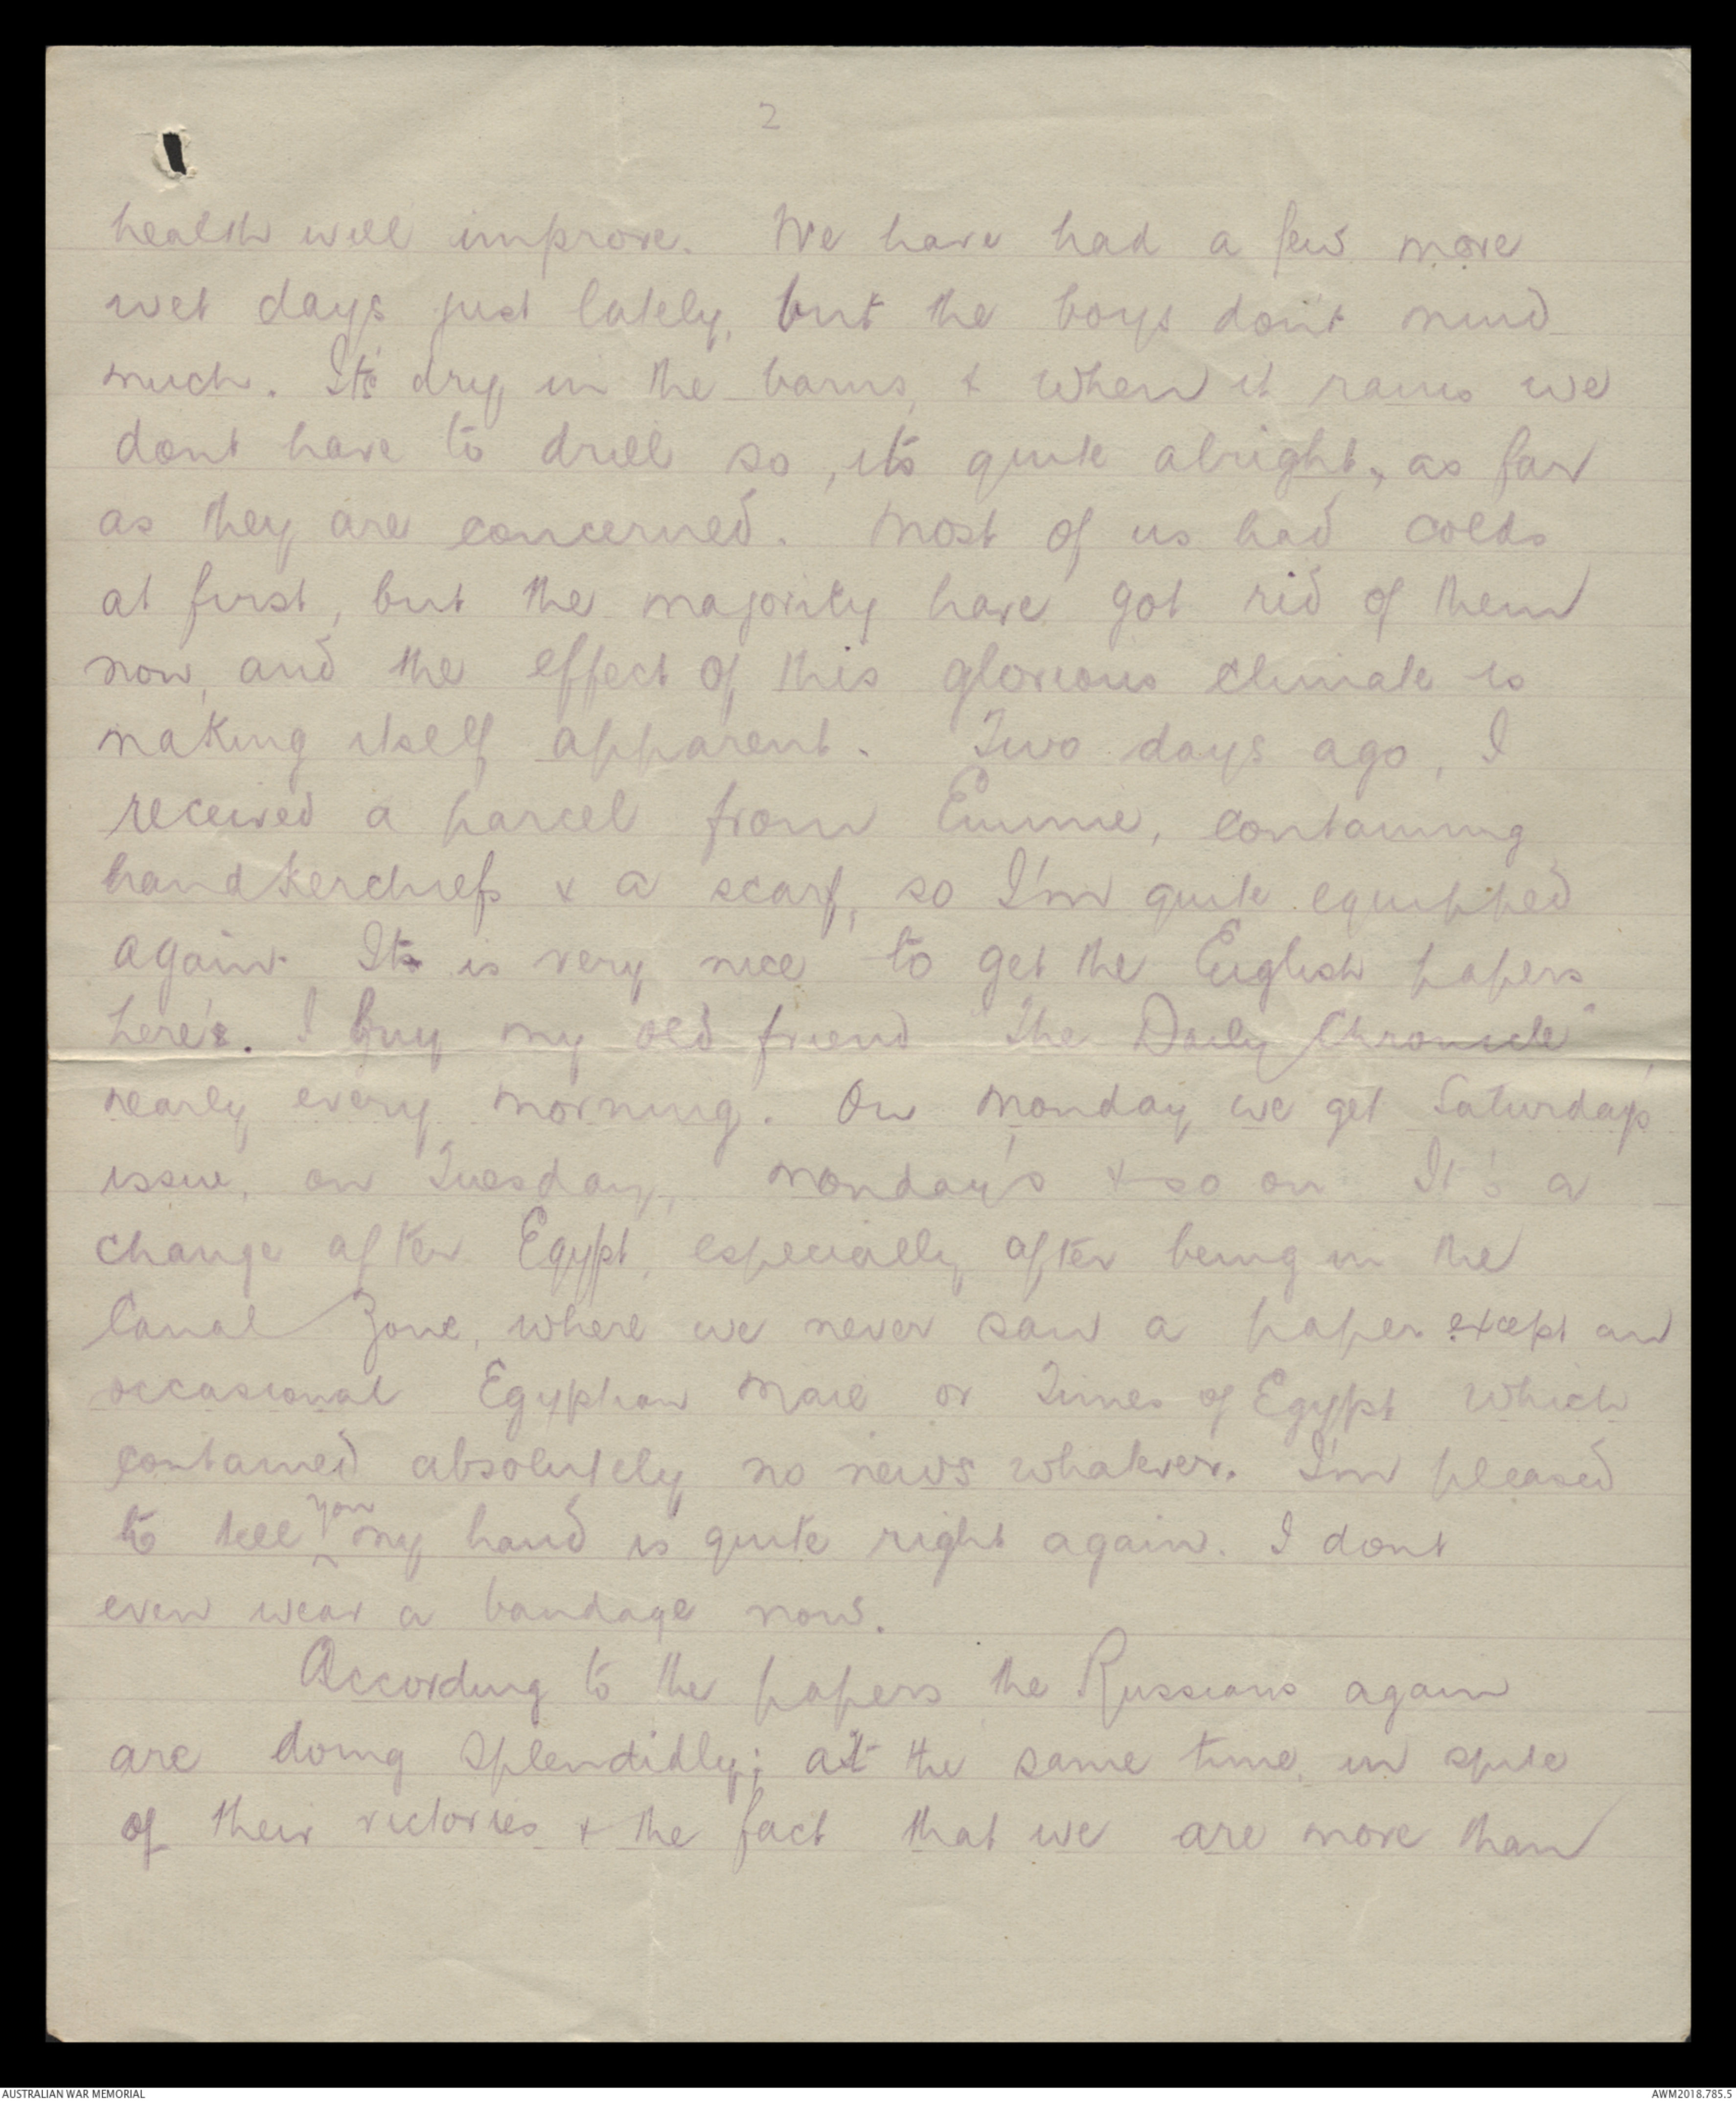 2
health will improve. We have had a few more
wet days just lately, but the boys don't mind
much. It's dry in the barns, & when it rains we
dont have to drill so, its quite alright, as far
as they are concerned. Most of us had colds
at first, but the majority have got rid of them
now, and the effect of this glorious climate is
making itself apparent. Two days ago, I
received a parcel from Emmie, containing
handkerchiefs & a scarf, so I'm quite equipped
again. It is very nice to get the English papers
here. I buy my old friend "The Daily Chronicle"
nearly every morning. On Monday we get Saturday's
issue, on Tuesday, Monday's & so on. It's a
change after Egypt, especially after being in the
Canal Zone, where we never saw a paper except an
occasional Egyptian Mail or Times of Egypt which
contained absolutely no news whatever. I'm pleased
to tell you my hand is quite right again. I dont
even wear a bandage now.
According to the papers the Russians again
are doing splendidly; at the same time, in spite
of their victories & the fact that we are more than
AUSTRALIAN WAR MEMORIAL
AWM2018.785.5